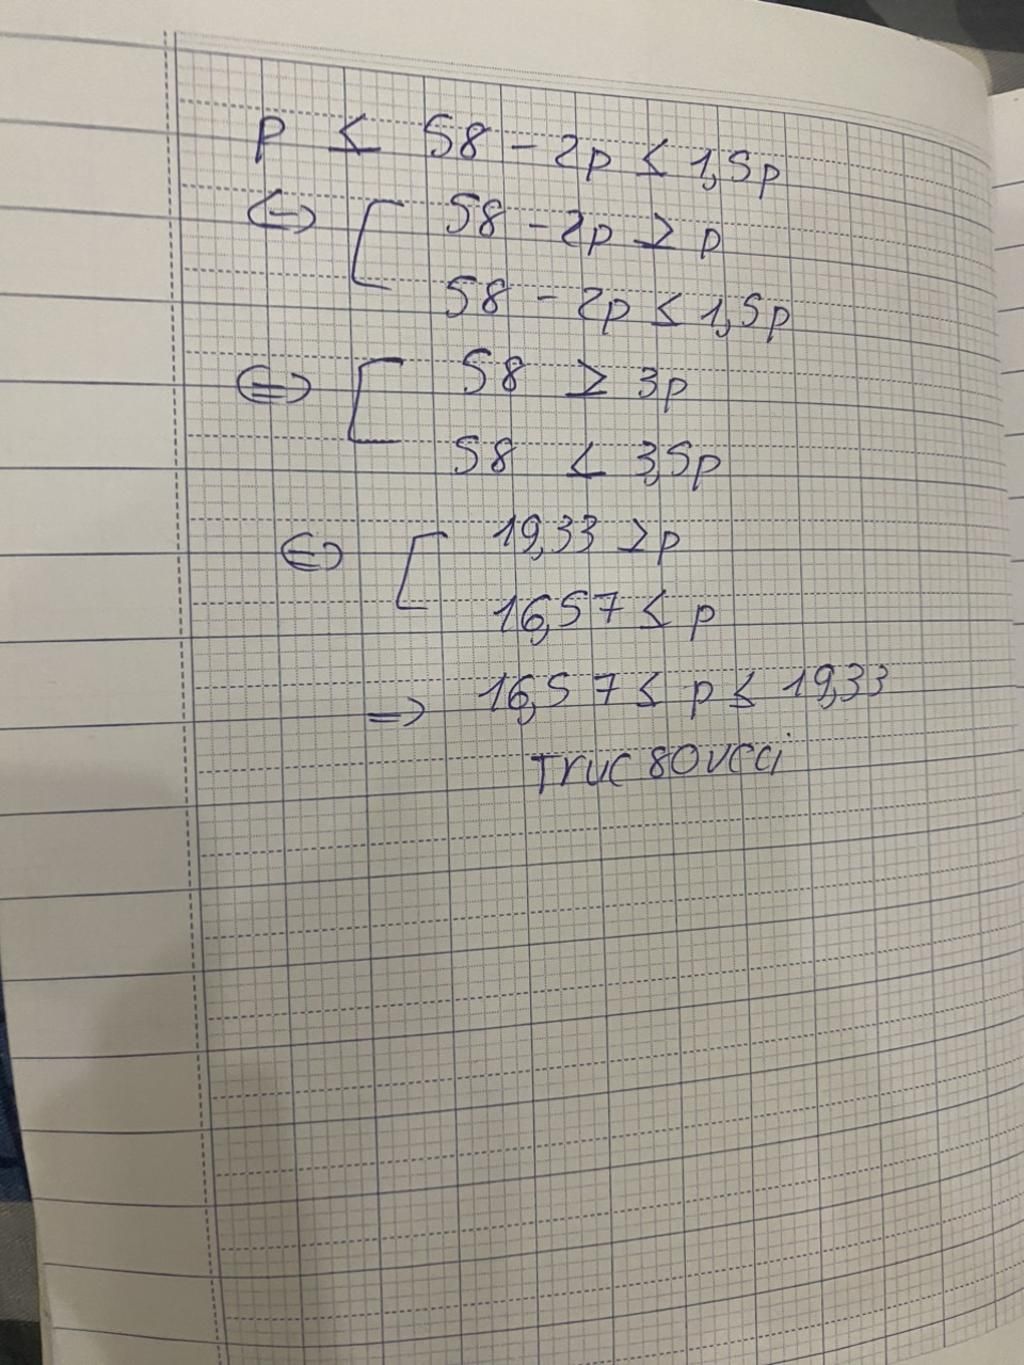 p ≤ 58 - 2p ≤ 1,5p
<-> [ 58 - 2p ≥ p
58 - 2p ≤ 1,5p
<=> [ 58 ≥ 3p
58 ≤ 3,5p
<=> [ 19,33 ≥ p
16,57 ≤ p
=> 16,57 ≤ p ≤ 19,33